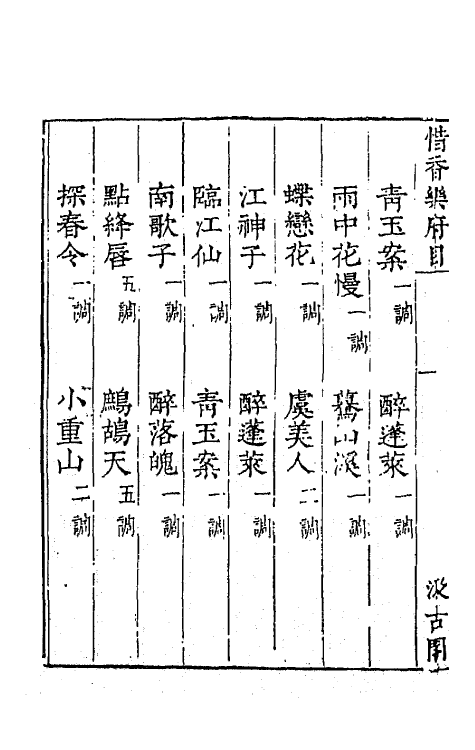 惜香樂府目 一 汲古閣
青玉案一調 醉蓬萊一調
雨中花慢一調 驀山溪一調
蝶戀花一調 虞美人二調
江神子一調 醉蓬萊一調
臨江仙一調 青玉案一調
南歌子一調 醉落魄一調
點絳唇五調 鷓鴣天五調
探春令一調 小重山二調